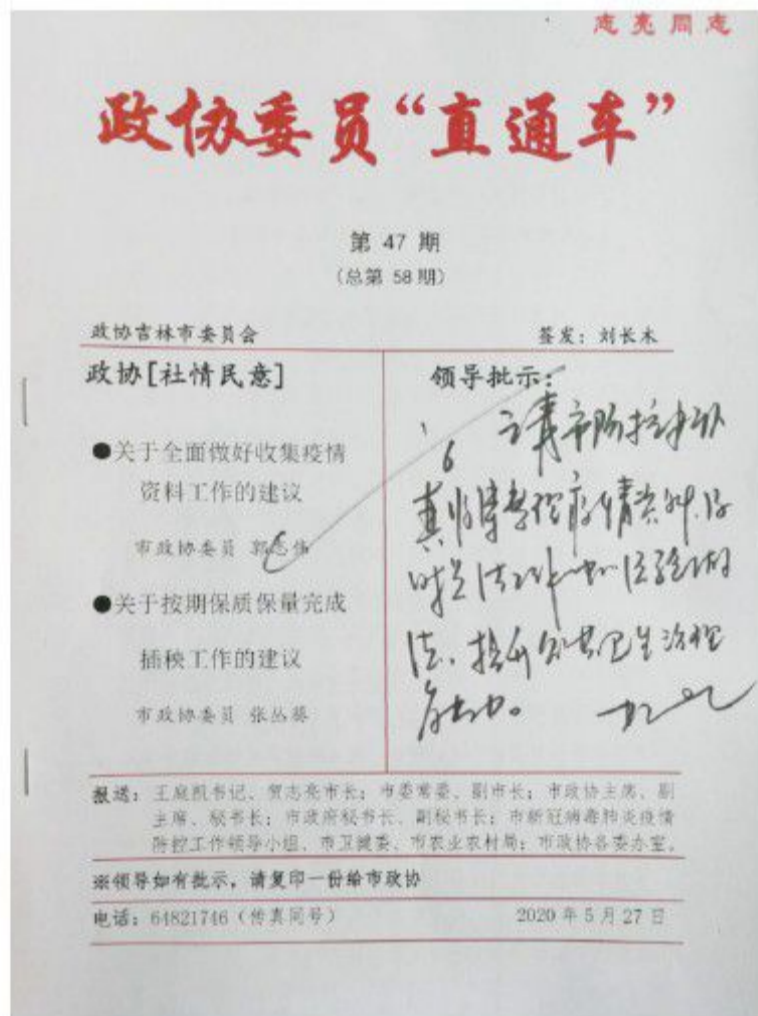 志亮同志
政协委员“直通车”
第 47 期
（总第 58 期）
政协吉林市委员会
签发：刘长木
政协[社情民意]
●关于全面做好收集疫情
资料工作的建议
市政协委员 郭志伟
●关于按期保质保量完成
插秧工作的建议
市政协委员 张丛葵
领导批示：
请市防控办认
真收集整理疫情资料，及
时总结
法，提升公共卫生治理
能力。
报送：王庭凯书记、贺志亮市长；市委常委、副市长；市政协主席、副
主席、秘书长；市政府秘书长、副秘书长；市新冠病毒肺炎疫情
防控工作领导小组、市卫健委、市农业农村局；市政协各委办室。
※领导如有批示，请复印一份给市政协
电话：64821746（传真同号）
2020 年 5 月 27 日